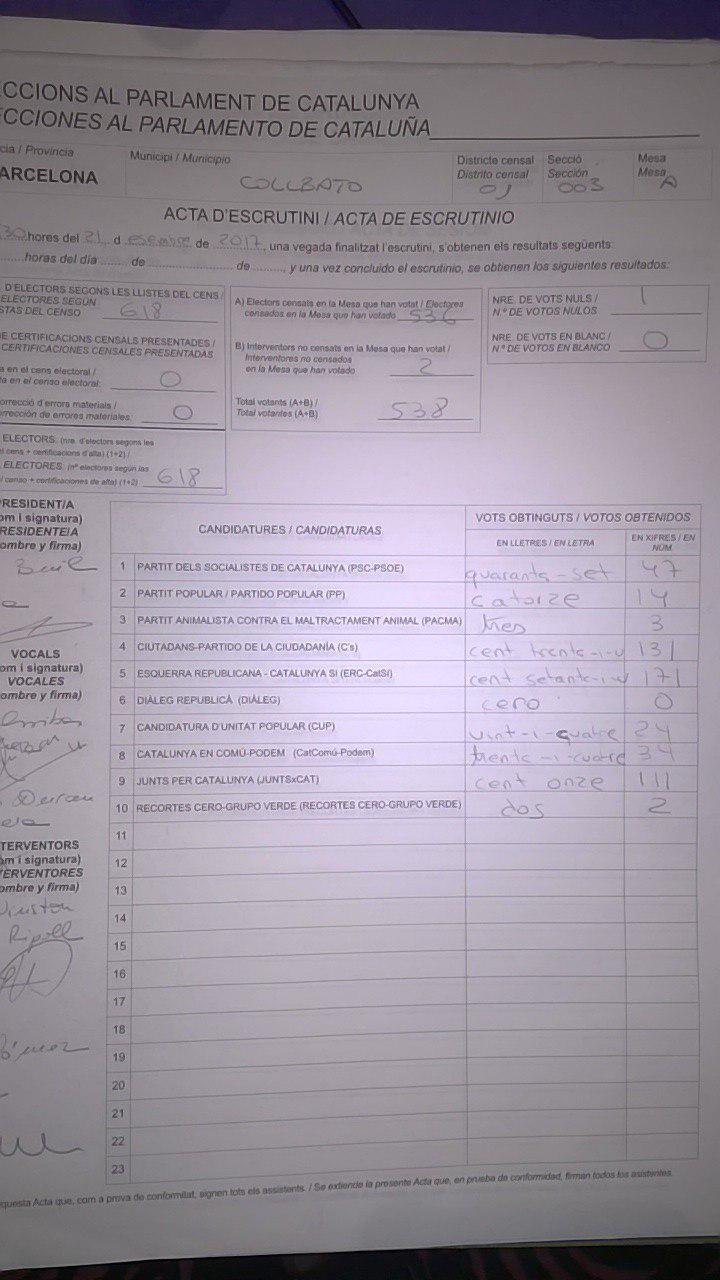 CCIONS AL PARLAMENT DE CATALUNYA
CCIONES AL PARLAMENTO DE CATALUÑA
cia / Provincia
ARCELONA
Municipi / Municipio
COLLBATO
Districte censal
Distrito censal
01
Secció
Sección
003
Mesa
Mesa
A
ACTA D'ESCRUTINI / ACTA DE ESCRUTINIO
30 hores del 21 d esembre de 2017, una vegada finalitzat l'escrutini, s'obtenen els resultats següents:
horas del día de de , y una vez concluido el escrutinio, se obtienen los siguientes resultados:
D'ELECTORS SEGONS LES LLISTES DEL CENS /
ELECTORES SEGÚN
STAS DEL CENSO 618
E CERTIFICACIONS CENSALS PRESENTADES /
CERTIFICACIONES CENSALES PRESENTADAS
a en el cens electoral /
ta en el censo electoral: 0
orrecció d'errors materials /
orrección de errores materiales: 0
ELECTORS: (nre. d'electors segons les
l cens + certificacions d'alta) (1+2) /
ELECTORES: (nº electores según las
l censo + certificaciones de alta) (1+2) 618
A) Electors censats en la Mesa que han votat / Electores
censados en la Mesa que han votado 536
B) Interventors no censats en la Mesa que han votat /
Interventores no censados
en la Mesa que han votado 2
Total votants (A+B) /
Total votantes (A+B) 538
NRE. DE VOTS NULS /
N.º DE VOTOS NULOS 1
NRE. DE VOTS EN BLANC /
N.º DE VOTOS EN BLANCO 0
RESIDENT/A
om i signatura)
RESIDENTE/A
ombre y firma)
VOCALS
om i signatura)
VOCALES
ombre y firma)
TERVENTORS
om i signatura)
TERVENTORES
ombre y firma)
Winston
Ripoll
CANDIDATURES / CANDIDATURAS
VOTS OBTINGUTS / VOTOS OBTENIDOS
EN LLETRES / EN LETRA
EN XIFRES / EN NÚM.
1 PARTIT DELS SOCIALISTES DE CATALUNYA (PSC-PSOE) quaranta-set 47
2 PARTIT POPULAR / PARTIDO POPULAR (PP) catorze 14
3 PARTIT ANIMALISTA CONTRA EL MALTRACTAMENT ANIMAL (PACMA) tres 3
4 CIUTADANS-PARTIDO DE LA CIUDADANÍA (C's) cent trenta-i-u 131
5 ESQUERRA REPUBLICANA - CATALUNYA SÍ (ERC-CatSí) cent setanta-i-u 171
6 DIÀLEG REPUBLICÀ (DIÀLEG) cero 0
7 CANDIDATURA D'UNITAT POPULAR (CUP) vint-i-quatre 24
8 CATALUNYA EN COMÚ-PODEM (CatComú-Podem) trenta-i-cuatre 34
9 JUNTS PER CATALUNYA (JUNTSxCAT) cent onze 111
10 RECORTES CERO-GRUPO VERDE (RECORTES CERO-GRUPO VERDE) dos 2
11
12
13
14
15
16
17
18
19
20
21
22
23
questa Acta que, com a prova de conformitat, signen tots els assistents. / Se extiende la presente Acta que, en prueba de conformidad, firman todos los asistentes.